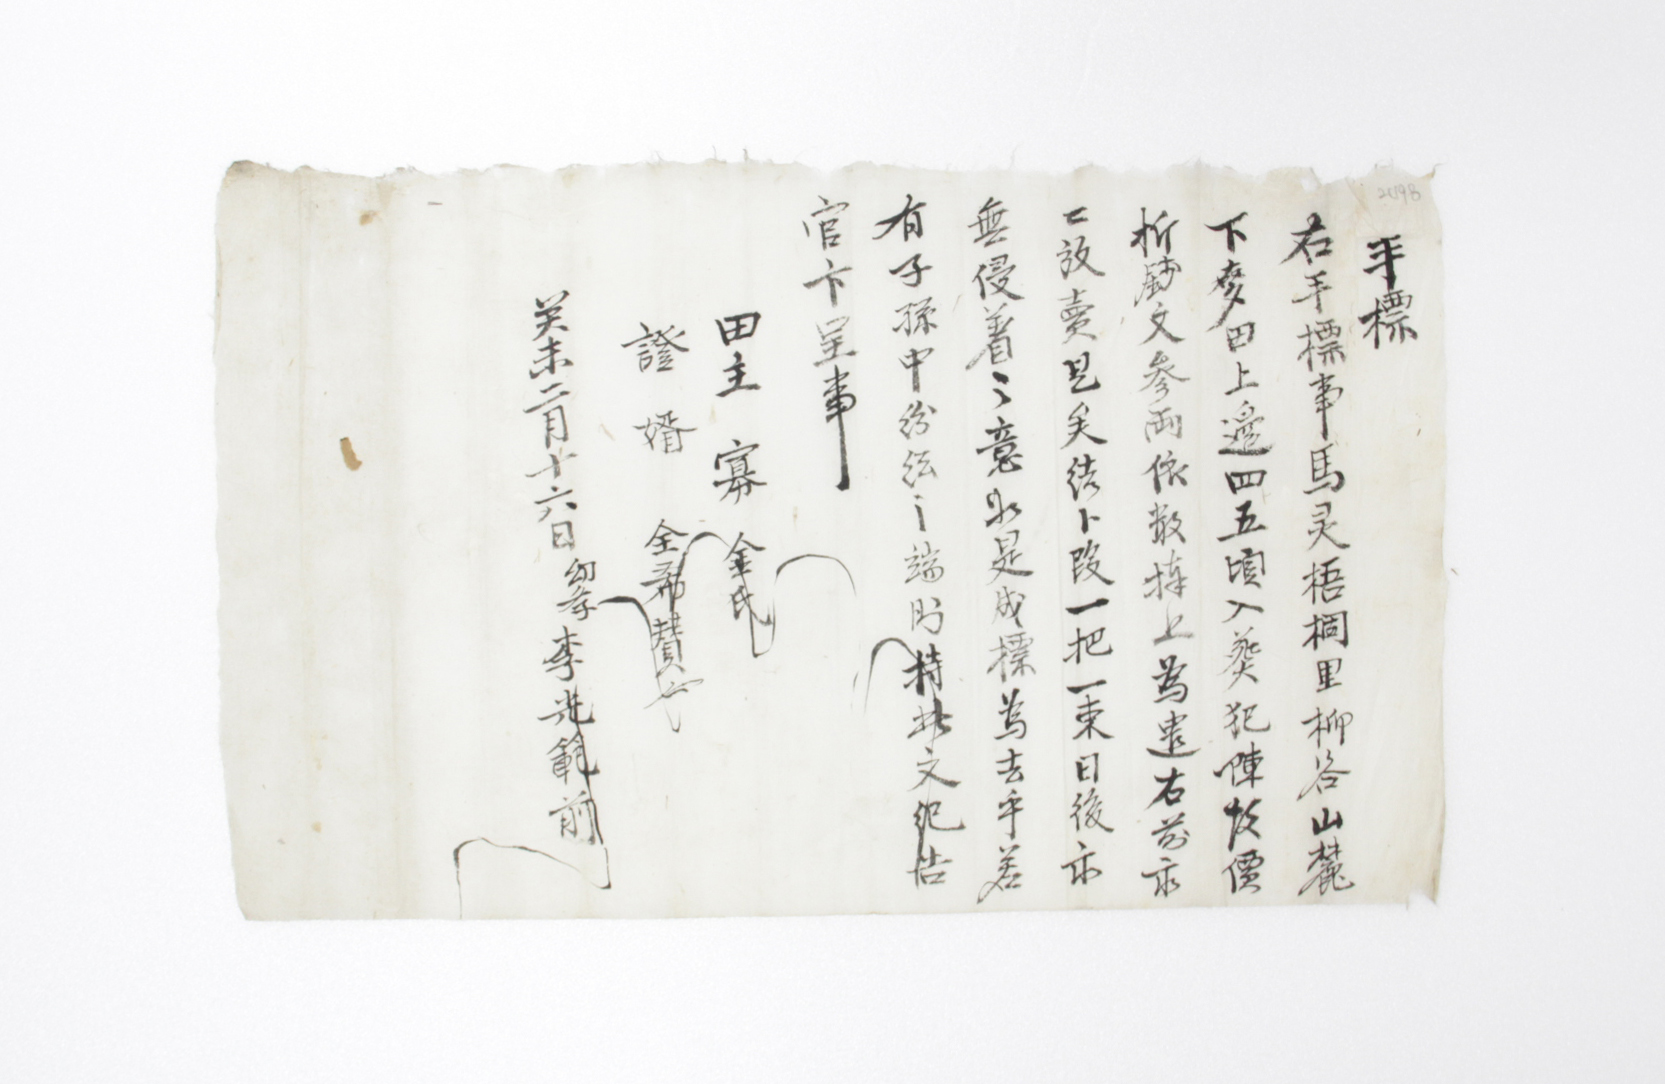 手標
右手標事馬灵梧桐里柳谷山麓
下麥田上邊四五頃入葬犯陳故價
折錢文參兩依數捧上爲遣右前亦
亡放賣是矣結卜段一把一束日後亦
無侵着之意永是成標爲去乎若
有子孫中紛紜之端則持此文記告
官卞呈事
田主 寡 金氏
證 婿 全
癸未二月十六日 幼學 李光範前
2098